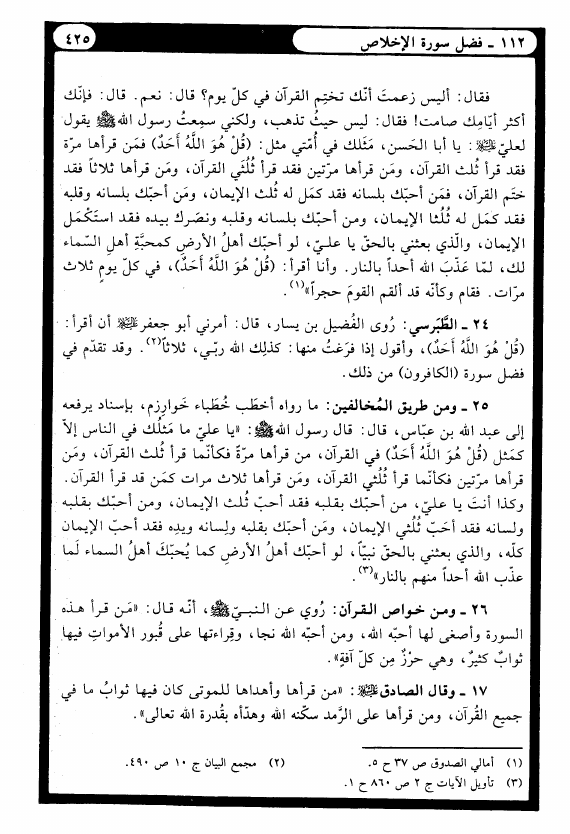 ١١٢ ـ فضل سورة الإخلاص
٤٢٥
فقال: أليس زعمتَ أنّك تختِم القرآن في كلّ يوم؟ قال: نعم. قال: فإنّك
أكثر أيّامِك صامت! فقال: ليس حيثُ تذهب، ولكني سمِعتُ رسول الله ﷺ يقول
لعليّ عليه السلام: يا أبا الحَسن، مَثَلك في أُمّتي مثل: (قُلْ هُوَ اللَّهُ أَحَدٌ) فمَن قرأها مرّة
فقد قرأ ثُلث القرآن، ومَن قرأها مرّتين فقد قرأ ثُلُثَي القرآن، ومَن قرأها ثلاثاً فقد
ختَم القرآن، فمَن أحبّك بلسانه فقد كمَل له ثُلث الإيمان، ومَن أحبّك بلسانه وقلبه
فقد كمَل له ثُلُثا الإيمان، ومن أحبّك بلسانه وقلبه ونصَرك بيده فقد استَكْمَل
الإيمان، والّذي بعثني بالحقّ يا عليّ، لو أحبّك أهلُ الأرض كمحبَّةِ أهلِ السّماء
لك، لمّا عَذّبَ الله أحداً بالنار. وأنا أقرأ: (قُلْ هُوَ اللَّهُ أَحَدٌ)، في كلّ يومٍ ثلاث
مرّات. فقام وكأنّه قد ألقم القومَ حجراً»(١).
٢٤ ـ الطَّبَرسي: رُوى الفُضيل بن يسار، قال: أمرني أبو جعفر عليه السلام أن أقرأ:
(قُلْ هُوَ اللَّهُ أَحَدٌ)، وأقول إذا فرَغتُ منها: كذلِك الله ربّي، ثلاثاً(٢). وقد تقدّم في
فضل سورة (الكافرون) من ذلك.
٢٥ ـ ومن طريق المُخالفين: ما رواه أخطَب خُطَباء خَوارِزم، بإسناد يرفعه
إلى عبد الله بن عبّاس، قال: قال رسول الله ﷺ: «يا عليّ ما مَثَلُك في الناس إلاّ
كمَثل (قُلْ هُوَ اللَّهُ أَحَدٌ) في القرآن، من قرأها مرّةً فكأنّما قرأ ثُلث القرآن، ومَن
قرأها مرّتين فكأنّما قرأ ثُلُثي القرآن، ومَن قرأها ثلاث مرات كمَن قد قرأ القرآن.
وكذا أنتَ يا عليّ، من أحبّك بقلبه فقد أحبّ ثُلث الإيمان، ومَن أحبّك بقلبه
ولسانه فقد أحَبّ ثُلُثي الإيمان، ومَن أحبّك بقلبه ولِسانه ويدِه فقد أحبّ الإيمان
كلّه، والذي بعثني بالحقّ نبيّاً، لو أحبّك أهلُ الأرضِ كما يُحبّك أهلُ السماء لَما
عذّب الله أحداً منهم بالنار»(٣).
٢٦ ـ ومن خواص القرآن: رُوي عن النبيّ ﷺ، أنّه قال: «مَن قرأ هذه
السورة وأصغى لها أحبّه الله، ومن أحبّه الله نجا، وقِراءتها على قُبور الأمواتِ فيها
ثوابٌ كثيرٌ، وهي حرْزٌ مِن كلّ آفةٍ».
١٧ ـ وقال الصادق عليه السلام: «من قرأها وأهداها للموتى كان فيها ثوابُ ما في
جميع القُرآن، ومن قرأها على الرَّمد سكّنه الله وهدّأه بقُدرة الله تعالى».
(١) أمالي الصدوق ص ٣٧ ح ٥.
(٢) مجمع البيان ج ١٠ ص ٤٩٠.
(٣) تأويل الآيات ج ٢ ص ٨٦٠ ح ١.